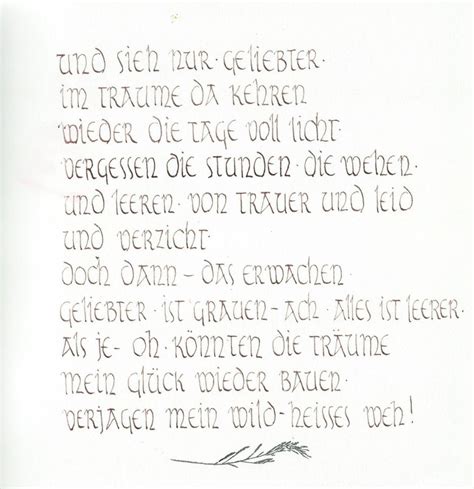 und sieh nur · geliebter ·
im traume da kehren
wieder die tage voll licht ·
vergessen die stunden · die wehen ·
und leeren · von trauer und leid
und verzicht ·
doch dann – das erwachen ·
geliebter · ist grauen – ach · alles ist leerer ·
als je – oh · könnten die träume
mein glück wieder bauen ·
verjagen mein wild-heisses weh!